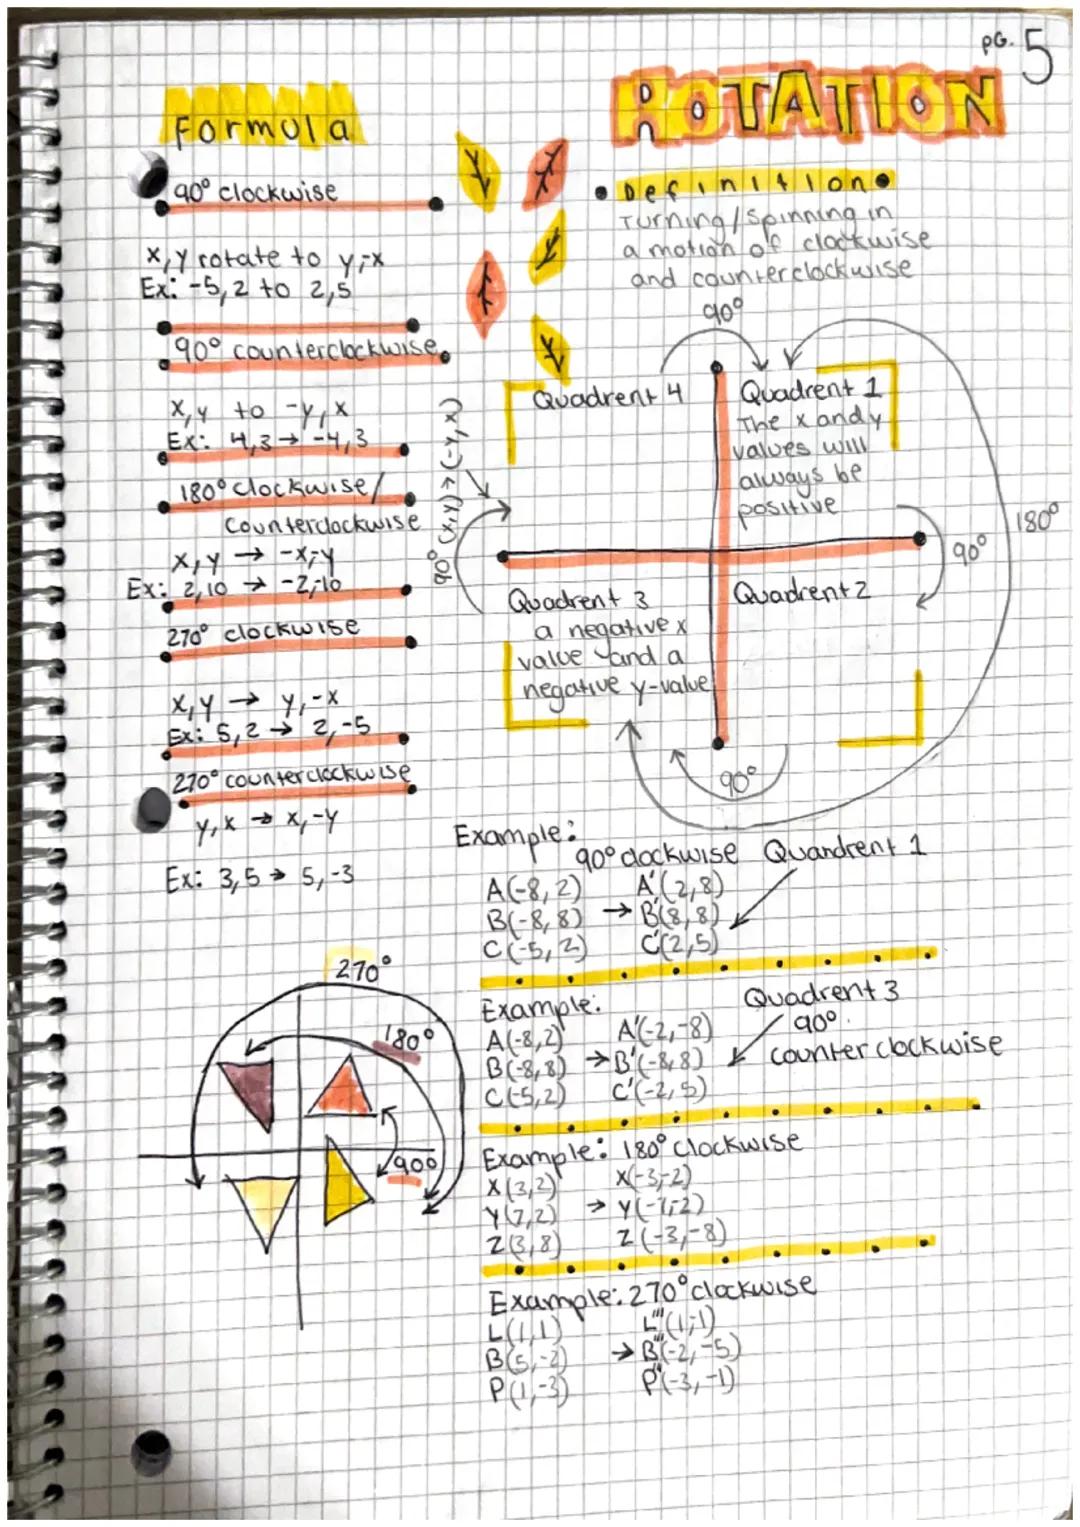 PG. 5
ROTATION
Formula
90° clockwise
x,y rotate to y,-x
Ex: -5,2 to 2,5
90° counterclockwise
x,y to -y,x
Ex: 4,3 → -4,3
180° clockwise/
counterclockwise
x,y → -x,-y
Ex: 2,10 → -2,-10
270° clockwise
x,y → y,-x
Ex: 5,2 → 2,-5
270° counterclockwise
y,x → x,-y
Ex: 3,5 → 5,-3
Definition
Turning/spinning in
a motion of clockwise
and counterclockwise
90°
Quadrent 4
Quadrent 1
The x and y
values will
always be
positive
90° (x,y) → (-y,x)
180°
90°
Quadrent 3
a negative x
value and a
negative y-value
Quadrent 2
90°
Example:
90° clockwise Quandrent 1
A(-8,2) A'(2,8)
B(-8,8) → B'(8,8)
C(-5,2) C'(2,5)
Example:
Quadrent 3
90°
counter clockwise
A(-8,2) A'(-2,-8)
B(-8,8) → B'(-8,8)
C(-5,2) C'(-2,5)
Example: 180° clockwise
X(3,2) X(-3,-2)
Y(7,2) → Y(-7,-2)
Z(3,8) Z(-3,-8)
Example: 270° clockwise
L(1,1) L'''(1,-1)
B(5,-2) → B'''(-2,-5)
P(1,-3) P''(-3,-1)
270°
180°
90°